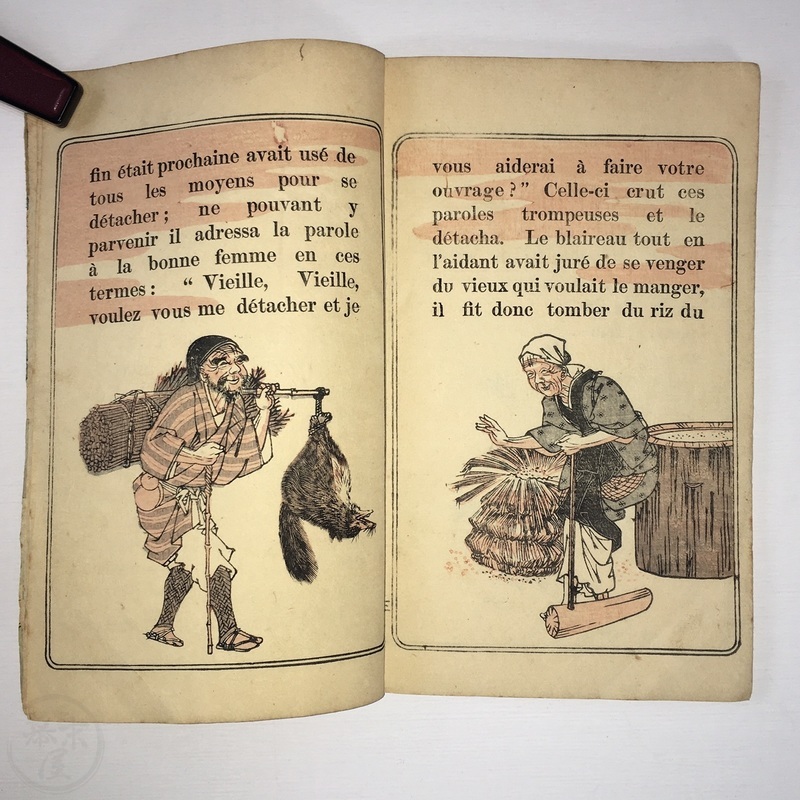 fin était prochaine avait usé de
tous les moyens pour se
détacher ; ne pouvant y
parvenir il adressa la parole
à la bonne femme en ces
termes : “ Vieille, Vieille,
voulez vous me détacher et je
vous aiderai à faire votre
ouvrage ? ” Celle-ci crut ces
paroles trompeuses et le
détacha. Le blaireau tout en
l'aidant avait juré de se venger
du vieux qui voulait le manger,
il fit donc tomber du riz du